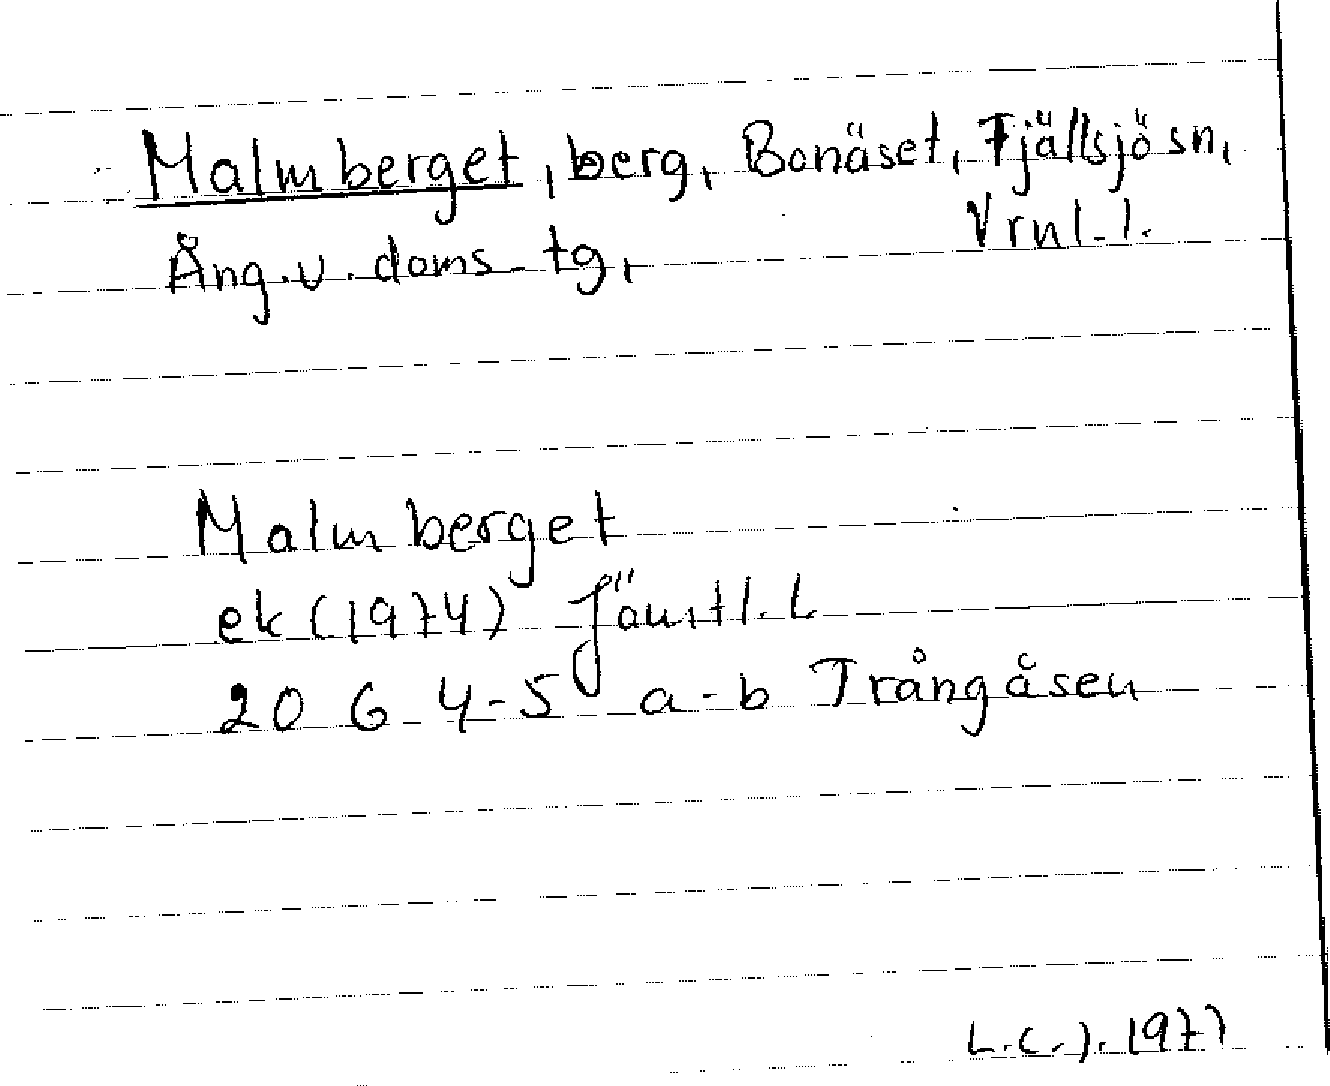 Malmberget, berg, Bonäset, Fjällsjö sn,
Ång.v.doms-tg, Vrnl.l.
Malmberget
ek (1974) Jämtl.L
20 G 4-5 a-b Trångåsen
L.C.J. 1977